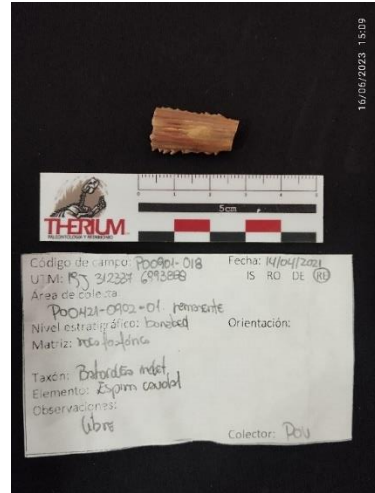 16/06/2023 15:09
5cm
THERIUM
PALEONTOLOGÍA Y PATRIMONIO
Código de campo: P00901-018 Fecha: 14/04/2021
UTM: 19J 312337 6993888 IS RO DE RE
Área de colecta
P00421-0902-01. remanente
Nivel estratigráfico: bonebed Orientación:
Matriz: roca fosfórica
Taxón: Batoidea indet.
Elemento: Espina caudal
Observaciones:
libre
Colector: POV